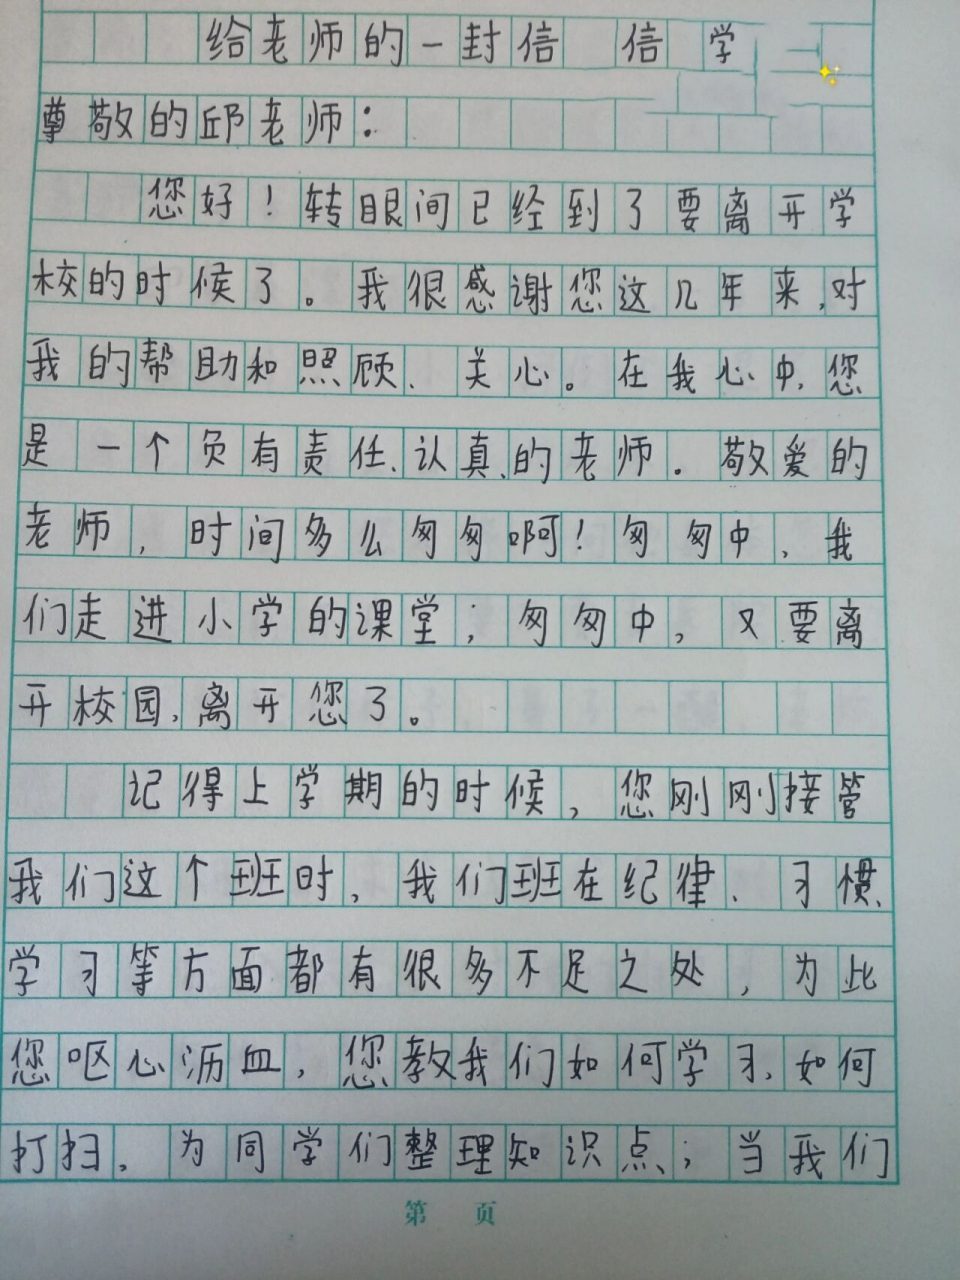 给老师的一封信 信 学
尊敬的邱老师：
您好！转眼间已经到了要离开学
校的时候了。我很感谢您这几年来，对
我的帮助和照顾、关心。在我心中，您
是一个负有责任、认真、的老师。敬爱的
老师，时间多么匆匆啊！匆匆中，我
们走进小学的课堂；匆匆中，又要离
开校园，离开您了。
记得上学期的时候，您刚刚接管
我们这个班时，我们班在纪律、习惯、
学习等方面都有很多不足之处，为此
您呕心沥血，您教我们如何学习，如何
打扫，为同学们整理知识点；当我们
第 页